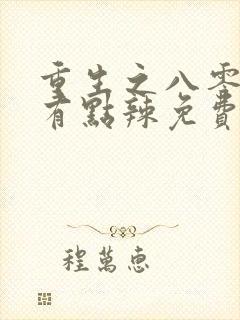 重生之八零
有點辣免費
程萬惠